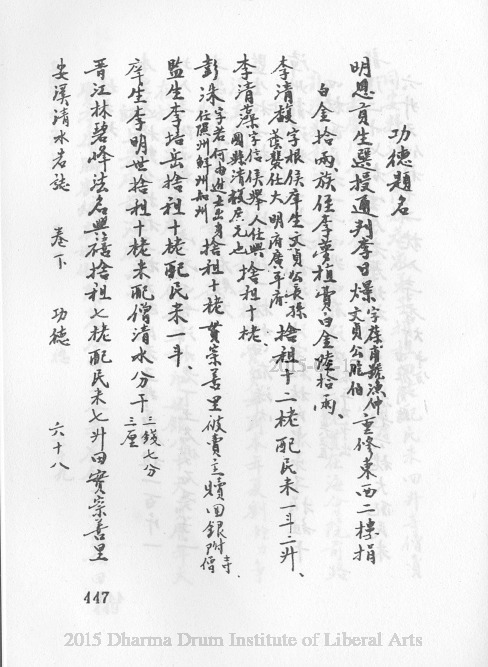 功德題名
明恩貢生選授通判李日燝字葆甫號漁仲文貞公胞伯重修東西二樓捐
白金拾兩、族侄李夢植膏白金陸拾兩、
李清馥字根侯庠生文貞公長孫蔭襲任大明府廣平府捨租十二栳配民米一斗二升、
李清藻字信侯舉人任興國縣清植庶兄也捨租十栳、
彭洙字若何由進士出身任假州知州捨租十栳貫崇善里被賣立贖回銀附僧寺、
監生李培岳捨租十栳配民米一斗、
庠生李明世捨租十栳米配僧清水分干三錢七分三厘
晋江林碧峰法名興禧捨租七栳配民米七升田實崇善里
安溪清水岩誌 卷下 功德 六十八
447
2015-05-11
2015 Dharma Drum Institute of Liberal Arts